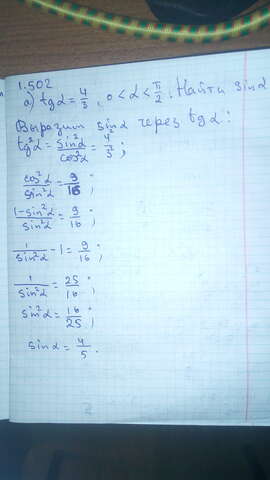 1.502
а) tgα = 4/3, 0 < α < π/2. Найти sinα
Выразим sin²α через tgα:
tg²α = sin²α/cos²α = 4/3;
cos²α/sin²α = 9/16;
1-sin²α/sin²α = 9/16;
1/sin²α - 1 = 9/16;
1/sin²α = 25/16;
sin²α = 16/25;
sinα = 4/5.